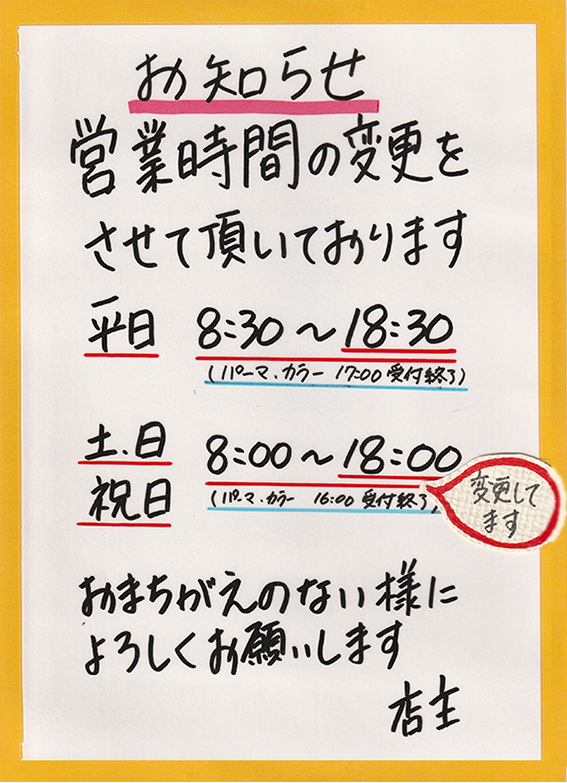 お知らせ
営業時間の変更を
させて頂いております
平日 8:30～18:30
(パーマ、カラー 17:00 受付終了)
土、日 8:00～18:00
祝日 (パーマ、カラー 16:00 受付終了)
変更して
ます
おまちがえのない様に
よろしくお願いします
店主